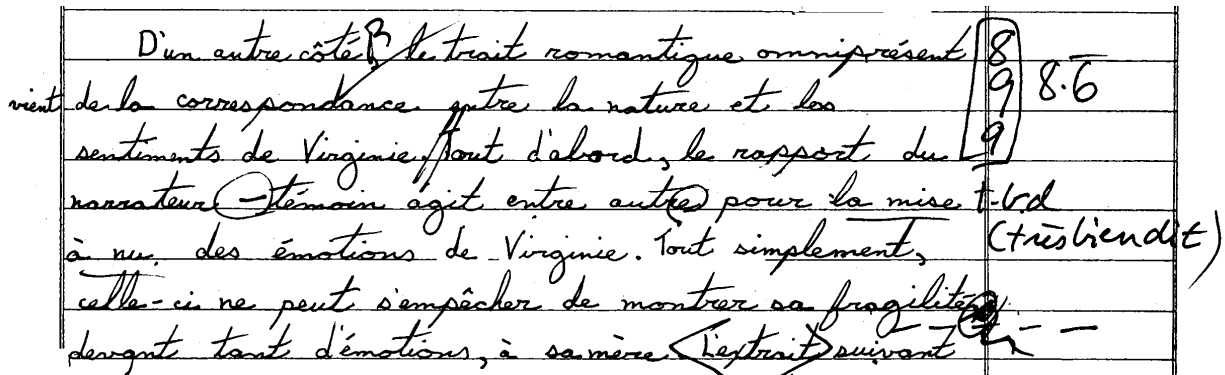 D'un autre côté, le trait romantique omniprésent 8
vient de la correspondance entre la nature et les 9 8.6
sentiments de Virginie. Tout d'abord, le rapport du 9
narrateur-témoin agit entre autre pour la mise t.b.d
à nu des émotions de Virginie. Tout simplement, (très bien dit)
celle-ci ne peut s'empêcher de montrer sa fragilité
devant tant d'émotions, à sa mère. L'extrait suivant